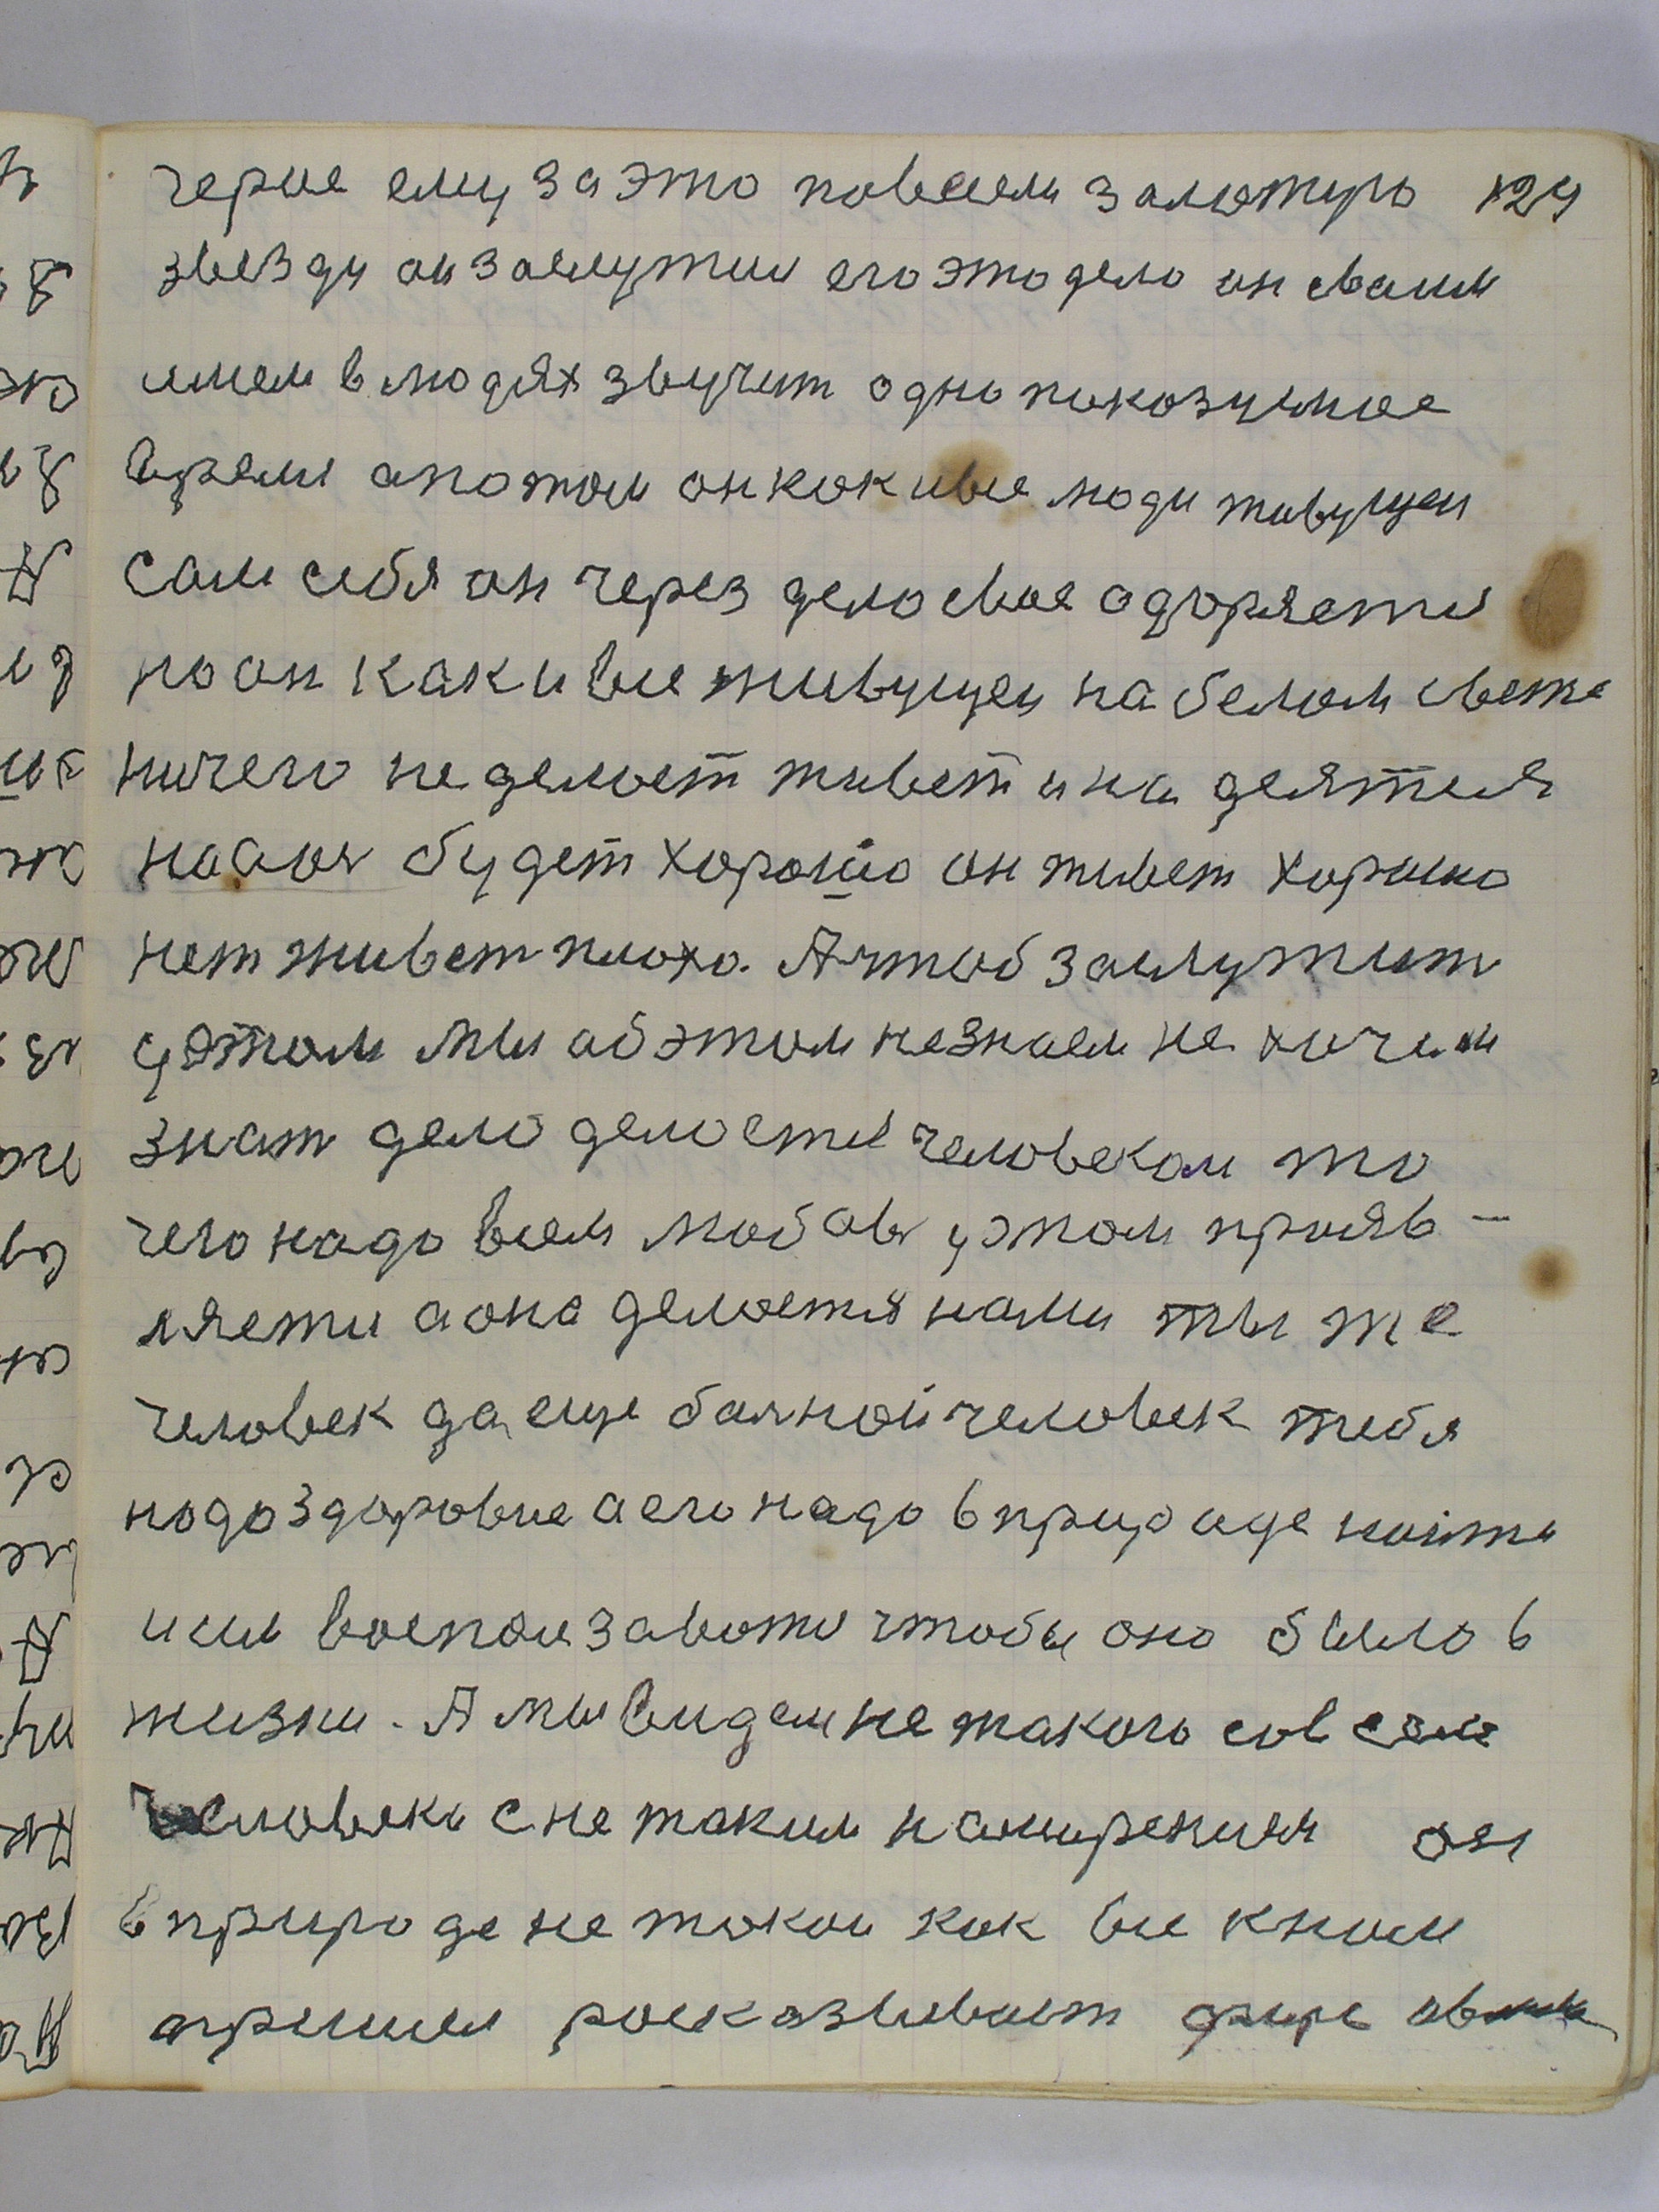 герое ему за это повесели залотую 124
звезду он заслужил его это дело он своим
имем в людях звучит одно показуемое
время а потом он как и все люди живущеи
сам себя он через дело свое одоряетси
но он как и все живущеи на белом свете
ничего не делоет живет и на деятся
на аось будет хорошо он живет хорошо
нет живет плохо. А чтоб заслужит
у этом мы об этом незнаем не хочим
знат дело делоется человеком то
чего надо всем любов у этом прояв-
ляети а оно делоется нами ты же
человек да еще болной человек тебя
надо здоровие а его надо в природе наити
или воспоизавоти чтобы оно было в
жизни. А мы видем не такого совсем
человека с не таким намирением он
в природе не такои как все к ним
пришел росказывает